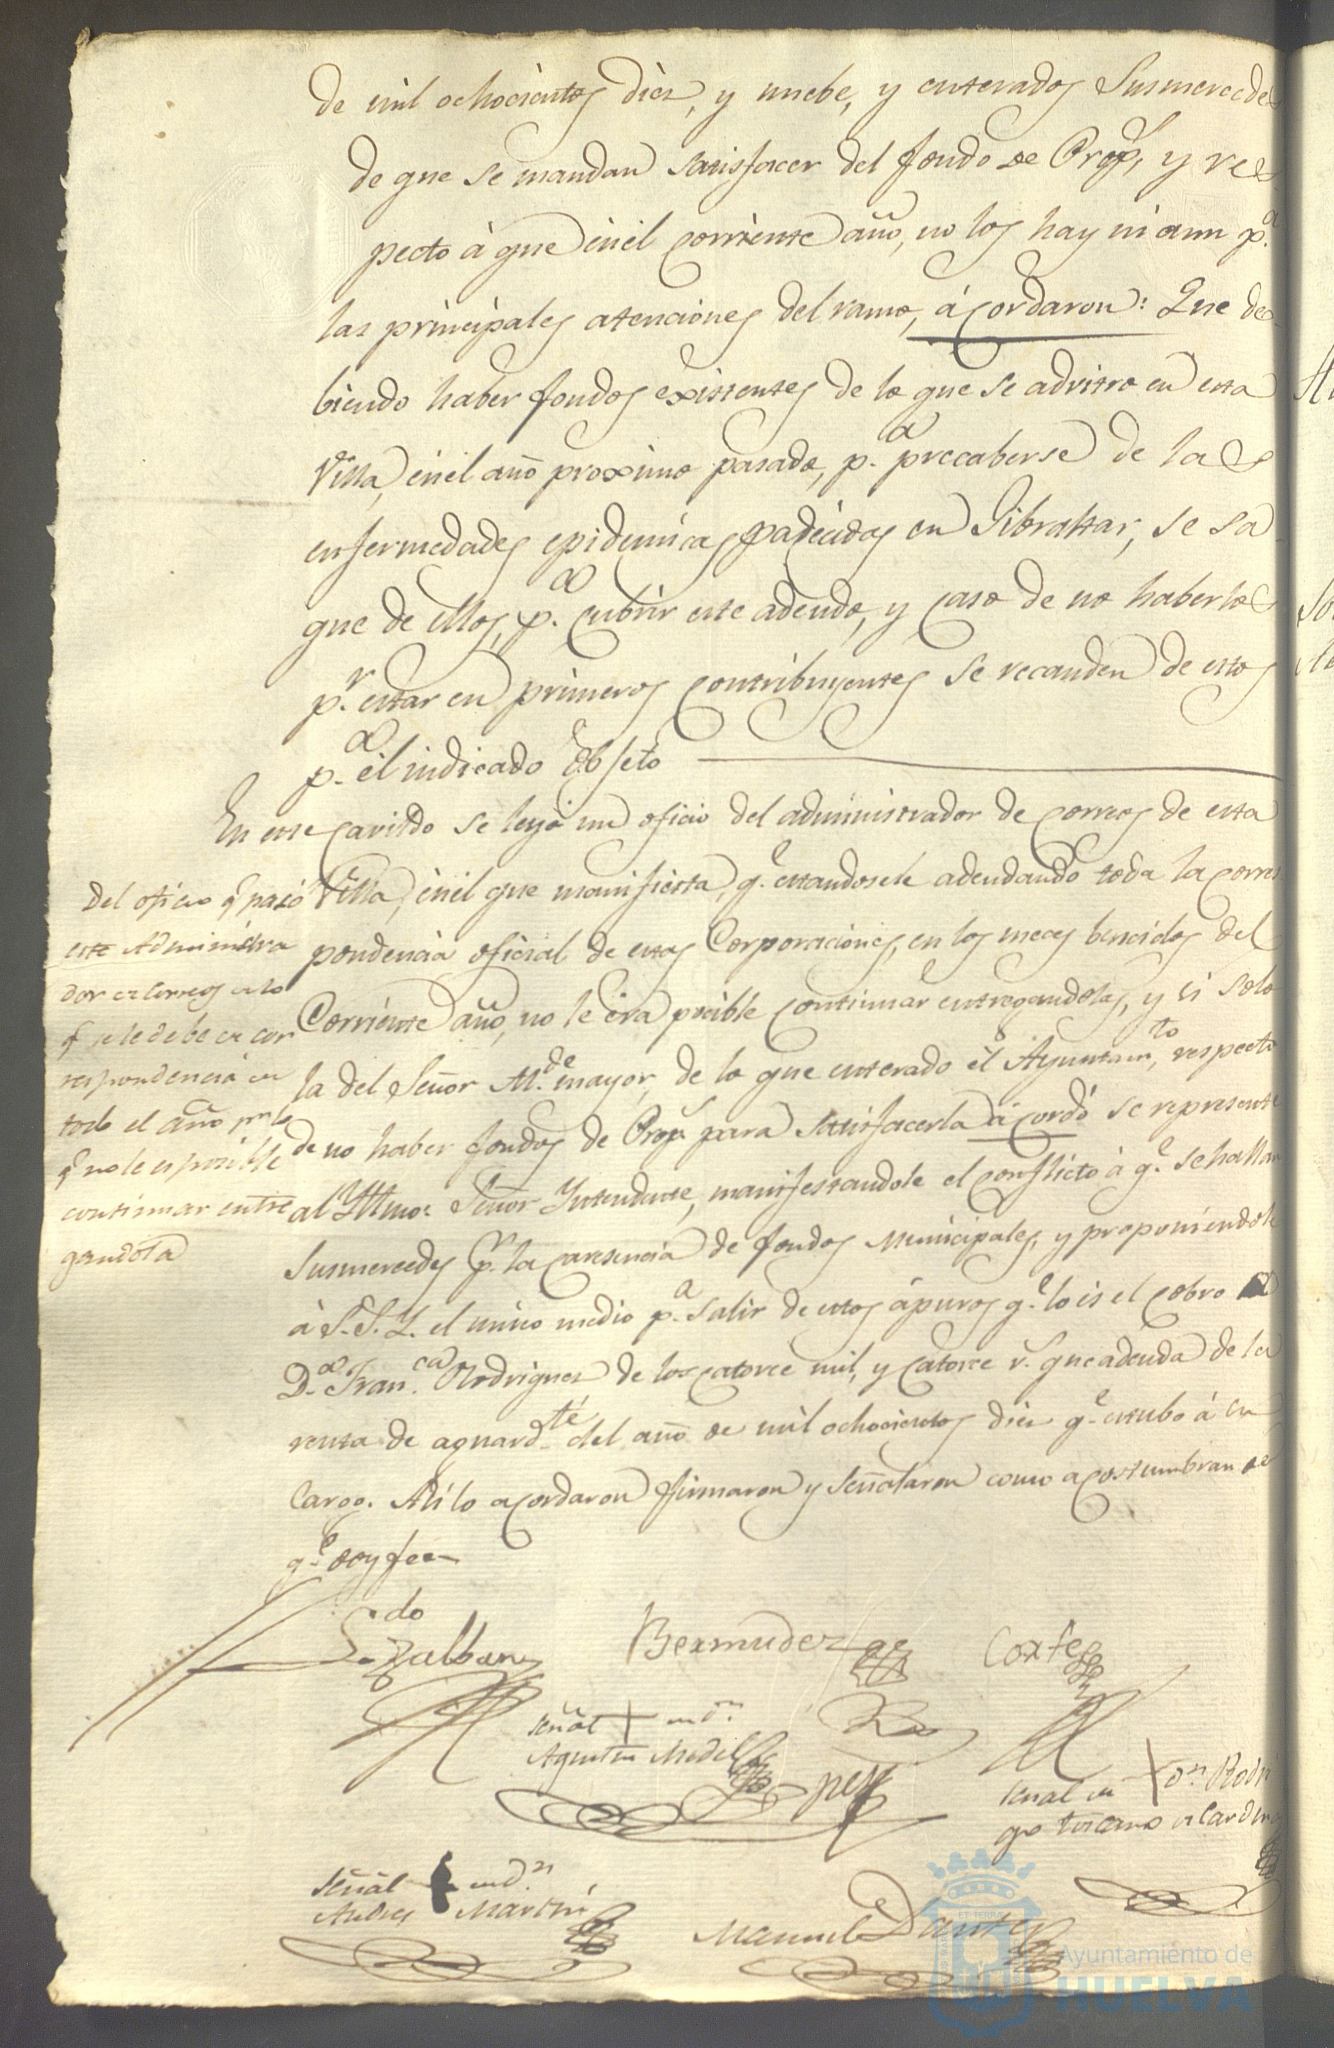 de mil ochocientos diez, y nuebe, y enterados Susmercedes
de que se mandan satisfacer del fondo de Prop.s, y res
pecto á que enel corriente año, no los hay ni aun p.a
las principales atenciones del ramo, ácordaron: Que de
biendo haber fondos existentes de lo que se advitro en esta
Villa, enel año proximo pasado, p.a precaberse de las
enfermedades epidemicas padecidas en Gibraltar, se sa
que de ellos, p.a cubrir este adeudo, y caso de no haberlos
p.r estar en primeros contribuyentes se recauden de estos
p.a el indicado Objeto
En este cavildo se leyó un oficio del administrador de correos de esta
Villa, enel que manifiesta, q.e estandosele adeudando toda la corres
pondencia oficial de estas Corporaciones, en los meces bencidos del
Corriente año, no le era posible continuar entregandolas, y si solo
la del Señor Al.de mayor, de lo que enterado el Ayuntam.to, respecto
de no haber fondos de Prop.s para satisfacerla ácordó se represente
al Yllmo. Señor Yntendente, manifestandole el conflicto á q.e se hallan
Susmercedes p.r la caresencia de fondos Municipales, y proponiendole
á S.S.Y. el unico medio p.a salir de estos ápuros q.e lo es el cobro
D.a Fran.ca Rodriguez de los catorce mil, y catorce r.s que adeuda de la
renta de aguard.te del año de mil ochocientos diez q.e estubo á su
Cargo. Asi lo acordaron firmaron y señalaron como acostumbran de
q.e doy fee
Del oficio q.e pasó
este Administra
dor de Correos de lo
q.e se le debe de cor
respondencia en
todo el año p.r lo
q.e no le es posible
continuar entre
gandola
L.do
Zalban
Bermudez
Cortes
señal + de D.n
Agustin Medel
señal de + D.n Rodri
go toscano de Cardenas
Señal + de D.n
Andres Martin
Manuel Dantes
Ayuntamiento de
HUELVA